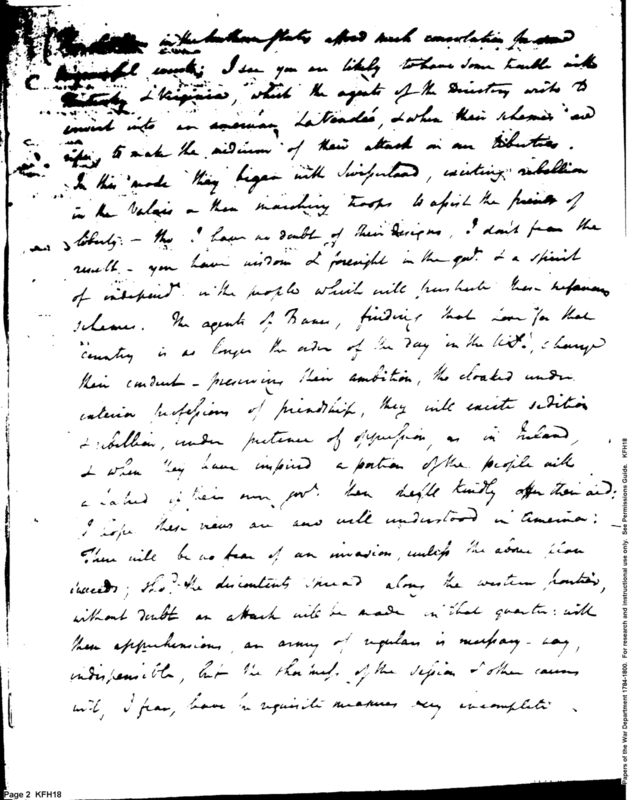 in the Southern States afford much consolation for our
I see you are likely to have some trouble with
Kentucky & Virginia, which the agents of the Directory wish to
convert into an american LaVendée, & when their schemes are
ripe, to make the medium of their attack on our liberties.
In this mode they began with Switzerland, exciting rebellion
in the Valais & then marching troops to assist the friends of
liberty. - tho' I have no doubt of their designs, I don't fear the
result - you have wisdom & foresight in the govt. & a spirit
of independ. in the people which will frustrate these nefarious
schemes. The agents of France, finding that love for that
country is no longer the order of the day in the U.S., change
their conduct - preserving their ambition, tho cloaked under
exterior professions of friendship, they will excite sedition
& rebellion, under pretence of oppression, as in Ireland,
& when they have inspired a portion of the people with
a hatred of their own govt. then they'll kindly offer their aid:
I hope these views are now well understood in America:
There will be no fear of an invasion, unless the above plan
succeeds; shod. the discontents spread along the western frontier,
without doubt an attack will be made in that quarter: with
these apprehensions, an army of regulars is necessary - nay,
indispensible, but the shortness of the session & other causes
will, I fear, leave the requisite measures very incomplete.
Page 2 KFH18
Papers of the War Department 1784-1800. For research and instructional use only. See Permissions Guide. KFH18